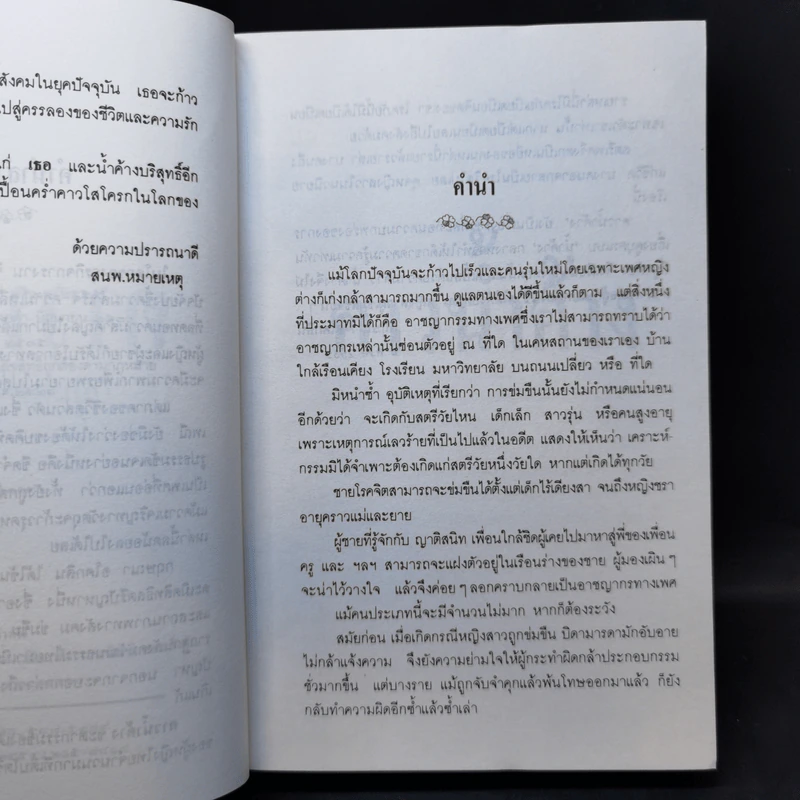 สังคมในยุคปัจจุบัน เธอจะก้าว
ปสู่ครรลองของชีวิตและความรัก
ก่ เธอ และน้ำค้างบริสุทธิ์อีก
ปื้อนคร่ำคาวโสโครกในโลกของ
ด้วยความปรารถนาดี
สนพ.หมายเหตุ
คำนำ
แม้โลกปัจจุบันจะก้าวไปเร็วและคนรุ่นใหม่โดยเฉพาะเพศหญิง
ต่างก็เก่งกล้าสามารถมากขึ้น ดูแลตนเองได้ดีขึ้นแล้วก็ตาม แต่สิ่งหนึ่ง
ที่ประมาทมิได้ก็คือ อาชญากรรมทางเพศซึ่งเราไม่สามารถทราบได้ว่า
อาชญากรเหล่านั้นซ่อนตัวอยู่ ณ ที่ใด ในเคหสถานของเราเอง บ้าน
ใกล้เรือนเคียง โรงเรียน มหาวิทยาลัย บนถนนเปลี่ยว หรือ ที่ใด
มิหนำซ้ำ อุบัติเหตุที่เรียกว่า การข่มขืนนั้นยังไม่กำหนดแน่นอน
อีกด้วยว่า จะเกิดกับสตรีวัยไหน เด็กเล็ก สาวรุ่น หรือคนสูงอายุ
เพราะเหตุการณ์เลวร้ายที่เป็นไปแล้วในอดีต แสดงให้เห็นว่า เคราะห์-
กรรมมิได้จำเพาะต้องเกิดแก่สตรีวัยหนึ่งวัยใด หากแต่เกิดได้ทุกวัย
ชายโรคจิตสามารถจะข่มขืนได้ตั้งแต่เด็กไร้เดียงสา จนถึงหญิงชรา
อายุคราวแม่และยาย
ผู้ชายที่รู้จักกับ ญาติสนิท เพื่อนใกล้ชิดผู้เคยไปมาหาสู่พี่ของเพื่อน
ครู และ ฯลฯ สามารถจะแฝงตัวอยู่ในเรือนร่างของชาย ผู้มองเผิน ๆ
จะน่าไว้วางใจ แล้วจึงค่อย ๆ ลอกคราบกลายเป็นอาชญากรทางเพศ
แม้คนประเภทนี้จะมีจำนวนไม่มาก หากก็ต้องระวัง
สมัยก่อน เมื่อเกิดกรณีหญิงสาวถูกข่มขืน บิดามารดามักอับอาย
ไม่กล้าแจ้งความ จึงยังความย่ามใจให้ผู้กระทำผิดกล้าประกอบกรรม
ชั่วมากขึ้น แต่บางราย แม้ถูกจับจำคุกแล้วพ้นโทษออกมาแล้ว ก็ยัง
กลับทำความผิดอีกซ้ำแล้วซ้ำเล่า